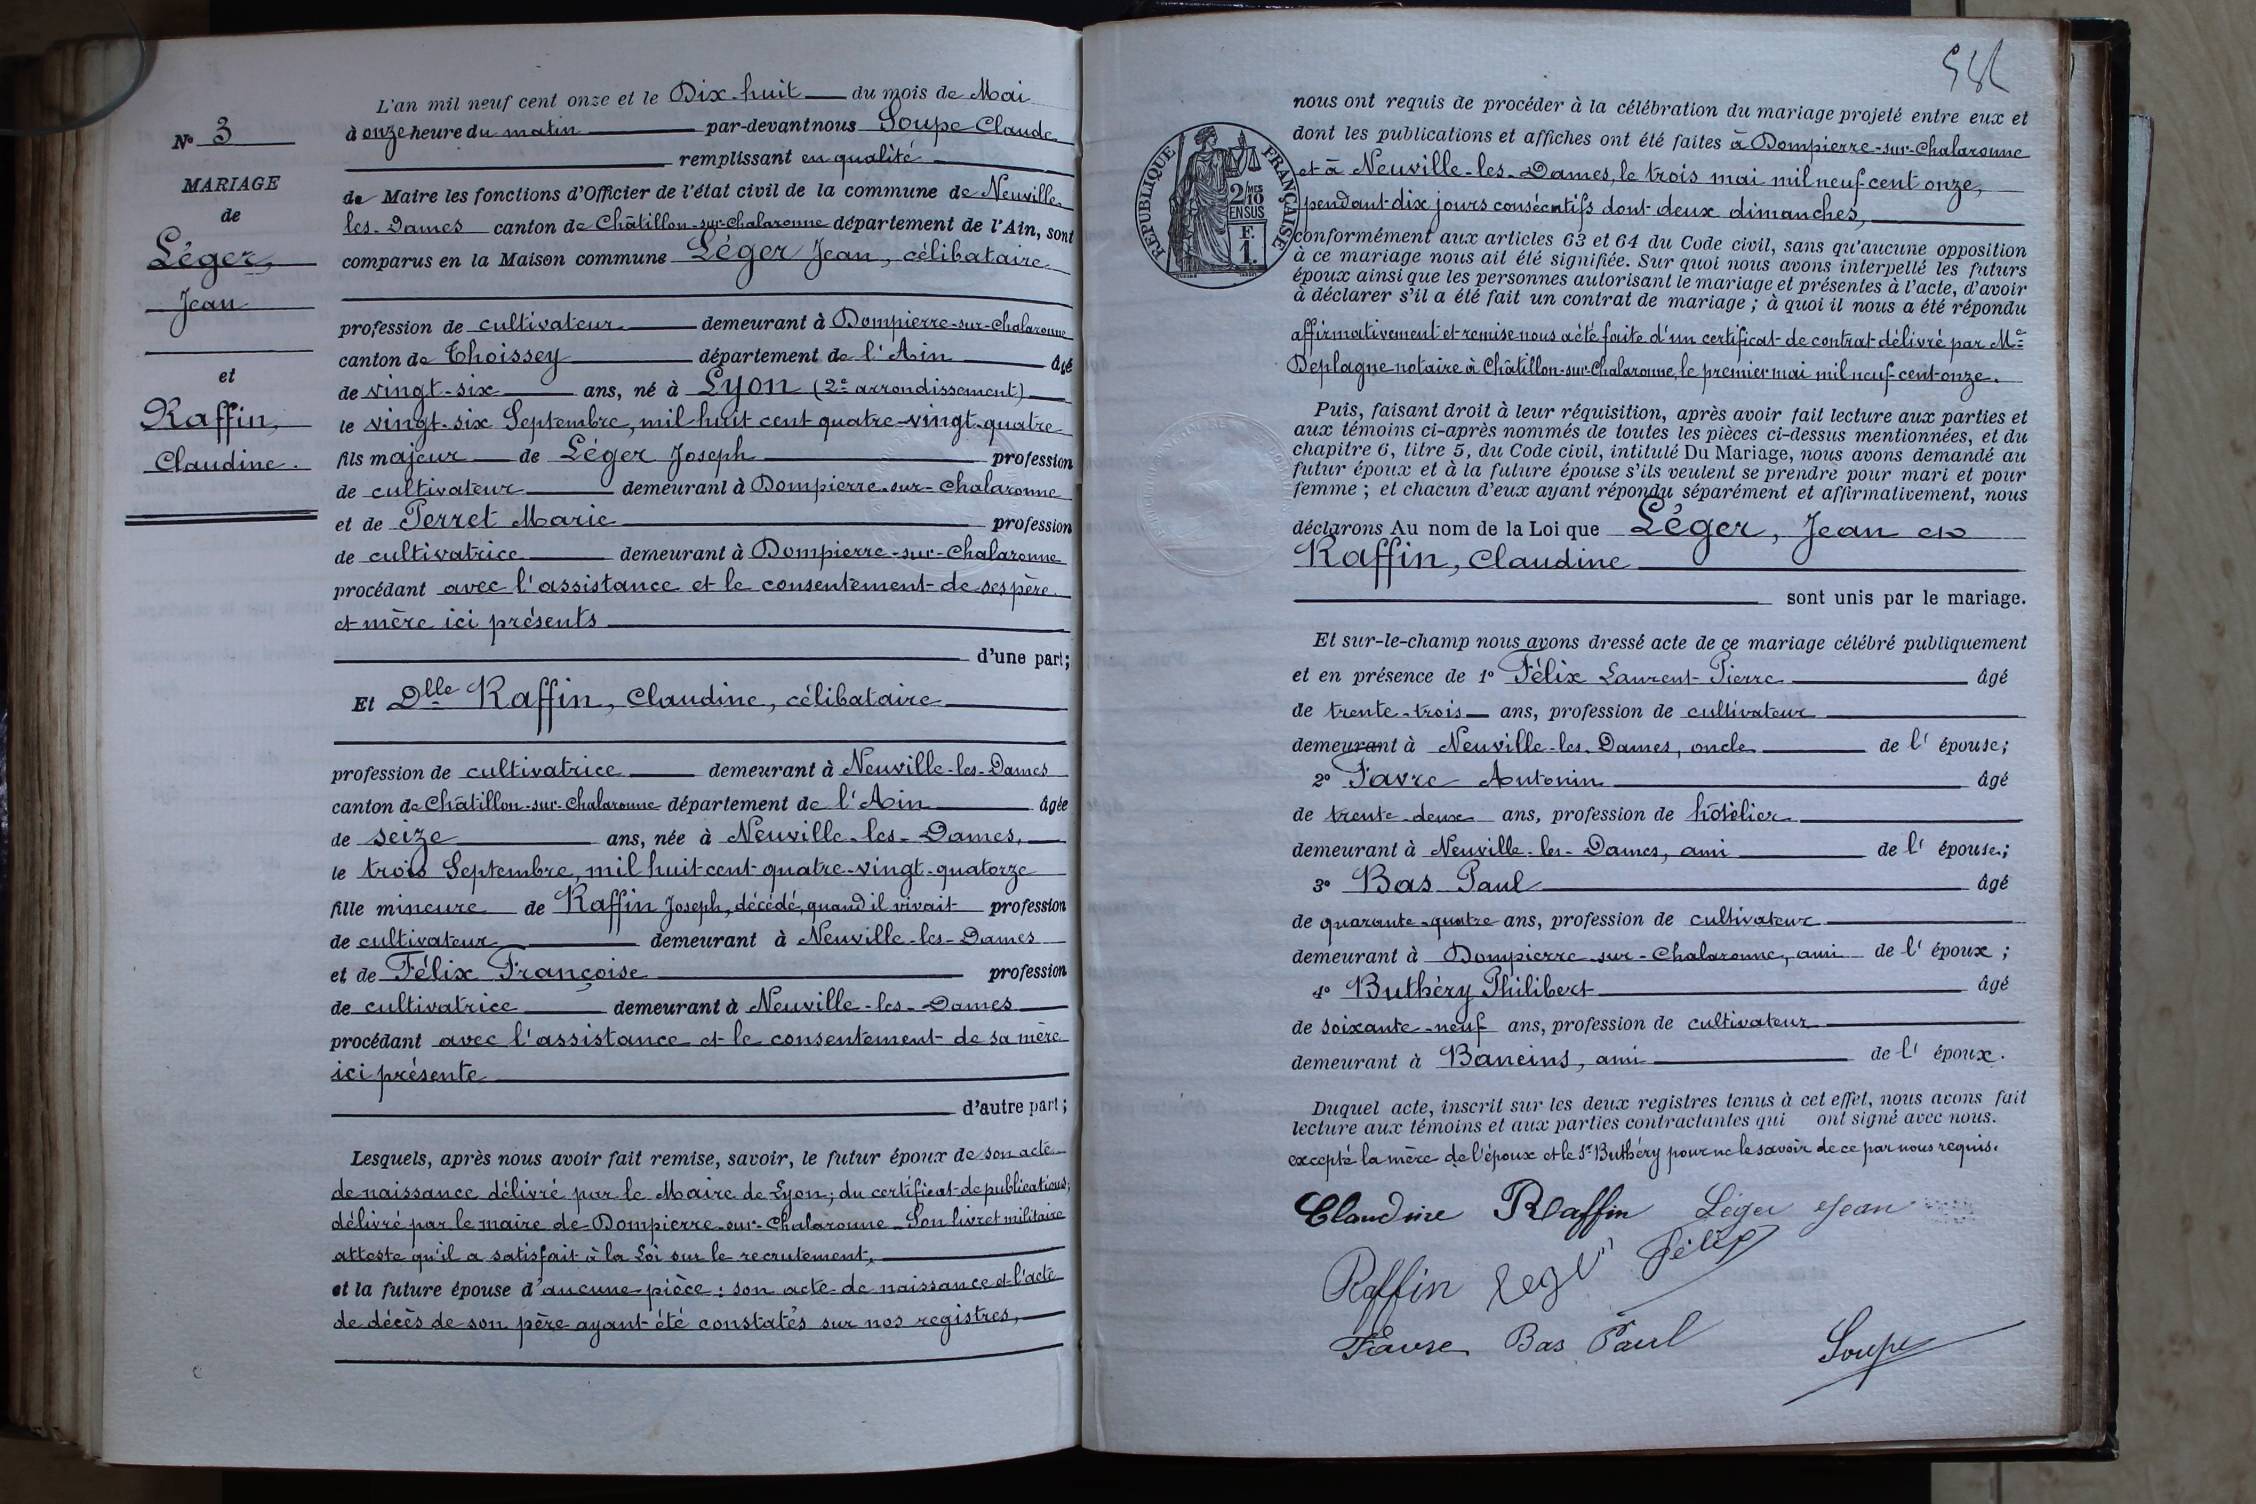 N° 3
MARIAGE
de
Léger,
Jean
et
Raffin,
Claudine.
L'an mil neuf cent onze et le Dix-huit du mois de Mai
à onze heure du matin par-devant nous Soupe Claude
remplissant en qualité
de Maire les fonctions d'Officier de l'état civil de la commune de Neuville-
les-Dames canton de Châtillon-sur-Chalaronne département de l'Ain, sont
comparus en la Maison commune Léger Jean, célibataire
profession de cultivateur demeurant à Dompierre-sur-Chalaronne
canton de Thoissey département de l'Ain âgé
de vingt-six ans, né à Lyon (2e arrondissement)
le vingt-six Septembre, mil huit cent quatre-vingt-quatre
fils majeur de Léger Joseph profession
de cultivateur demeurant à Dompierre-sur-Chalaronne
et de Perret Marie profession
de cultivatrice demeurant à Dompierre-sur-Chalaronne
procédant avec l'assistance et le consentement de ses père
et mère ici présents
d'une part;
Et Dlle Raffin, Claudine, célibataire
profession de cultivatrice demeurant à Neuville-les-Dames
canton de Châtillon-sur-Chalaronne département de l'Ain âgée
de seize ans, née à Neuville-les-Dames,
le trois Septembre, mil huit-cent-quatre-vingt-quatorze
fille mineure de Raffin Joseph, décédé, quand il vivait profession
de cultivateur demeurant à Neuville-les-Dames
et de Félix Françoise profession
de cultivatrice demeurant à Neuville-les-Dames
procédant avec l'assistance et le consentement de sa mère
ici présente
d'autre part;
Lesquels, après nous avoir fait remise, savoir, le futur époux de son acte
de naissance délivré par le Maire de Lyon; du certificat de publications,
délivré par le maire de Dompierre-sur-Chalaronne. Son livret militaire
atteste qu'il a satisfait à la Loi sur le recrutement,
et la future épouse d'aucune pièce: son acte de naissance et l'acte
de décès de son père ayant été constatés sur nos registres,
nous ont requis de procéder à la célébration du mariage projeté entre eux et
dont les publications et affiches ont été faites à Dompierre-sur-Chalaronne
et à Neuville-les-Dames, le trois mai mil neuf cent onze,
pendant dix jours consécutifs dont deux dimanches,
RÉPUBLIQUE FRANÇAISE
2/10 MES
EN SUS
F.
1.
conformément aux articles 63 et 64 du Code civil, sans qu'aucune opposition
à ce mariage nous ait été signifiée. Sur quoi nous avons interpellé les futurs
époux ainsi que les personnes autorisant le mariage et présentes à l'acte, d'avoir
à déclarer s'il a été fait un contrat de mariage; à quoi il nous a été répondu
affirmativement et remise nous a été faite d'un certificat de contrat délivré par Me
Deplagne notaire à Châtillon-sur-Chalaronne, le premier mai mil neuf-cent-onze.
Puis, faisant droit à leur réquisition, après avoir fait lecture aux parties et
aux témoins ci-après nommés de toutes les pièces ci-dessus mentionnées, et du
chapitre 6, titre 5, du Code civil, intitulé Du Mariage, nous avons demandé au
futur époux et à la future épouse s'ils veulent se prendre pour mari et pour
femme; et chacun d'eux ayant répondu séparément et affirmativement, nous
déclarons Au nom de la Loi que Léger, Jean et
Raffin, Claudine
sont unis par le mariage.
Et sur-le-champ nous avons dressé acte de ce mariage célébré publiquement
et en présence de 1° Félix Laurent-Pierre âgé
de trente-trois ans, profession de cultivateur
demeurant à Neuville-les-Dames, oncle de l'épouse;
2° Favre Antonin âgé
de trente-deux ans, profession de hôtelier
demeurant à Neuville-les-Dames, ami de l'épouse;
3° Bas Paul âgé
de quarante-quatre ans, profession de cultivateur
demeurant à Dompierre-sur-Chalaronne, ami de l'époux;
4° Buthéry Philibert âgé
de soixante-neuf ans, profession de cultivateur
demeurant à Baneins, ami de l'époux.
Duquel acte, inscrit sur les deux registres tenus à cet effet, nous avons fait
lecture aux témoins et aux parties contractantes qui ont signé avec nous.
excepté la mère de l'époux et le Sr Buthéry pour ne le savoir de ce par nous requis.
Claudine Raffin Léger Jean
Raffin Leger Félix
Favre Bas Paul
Soupe